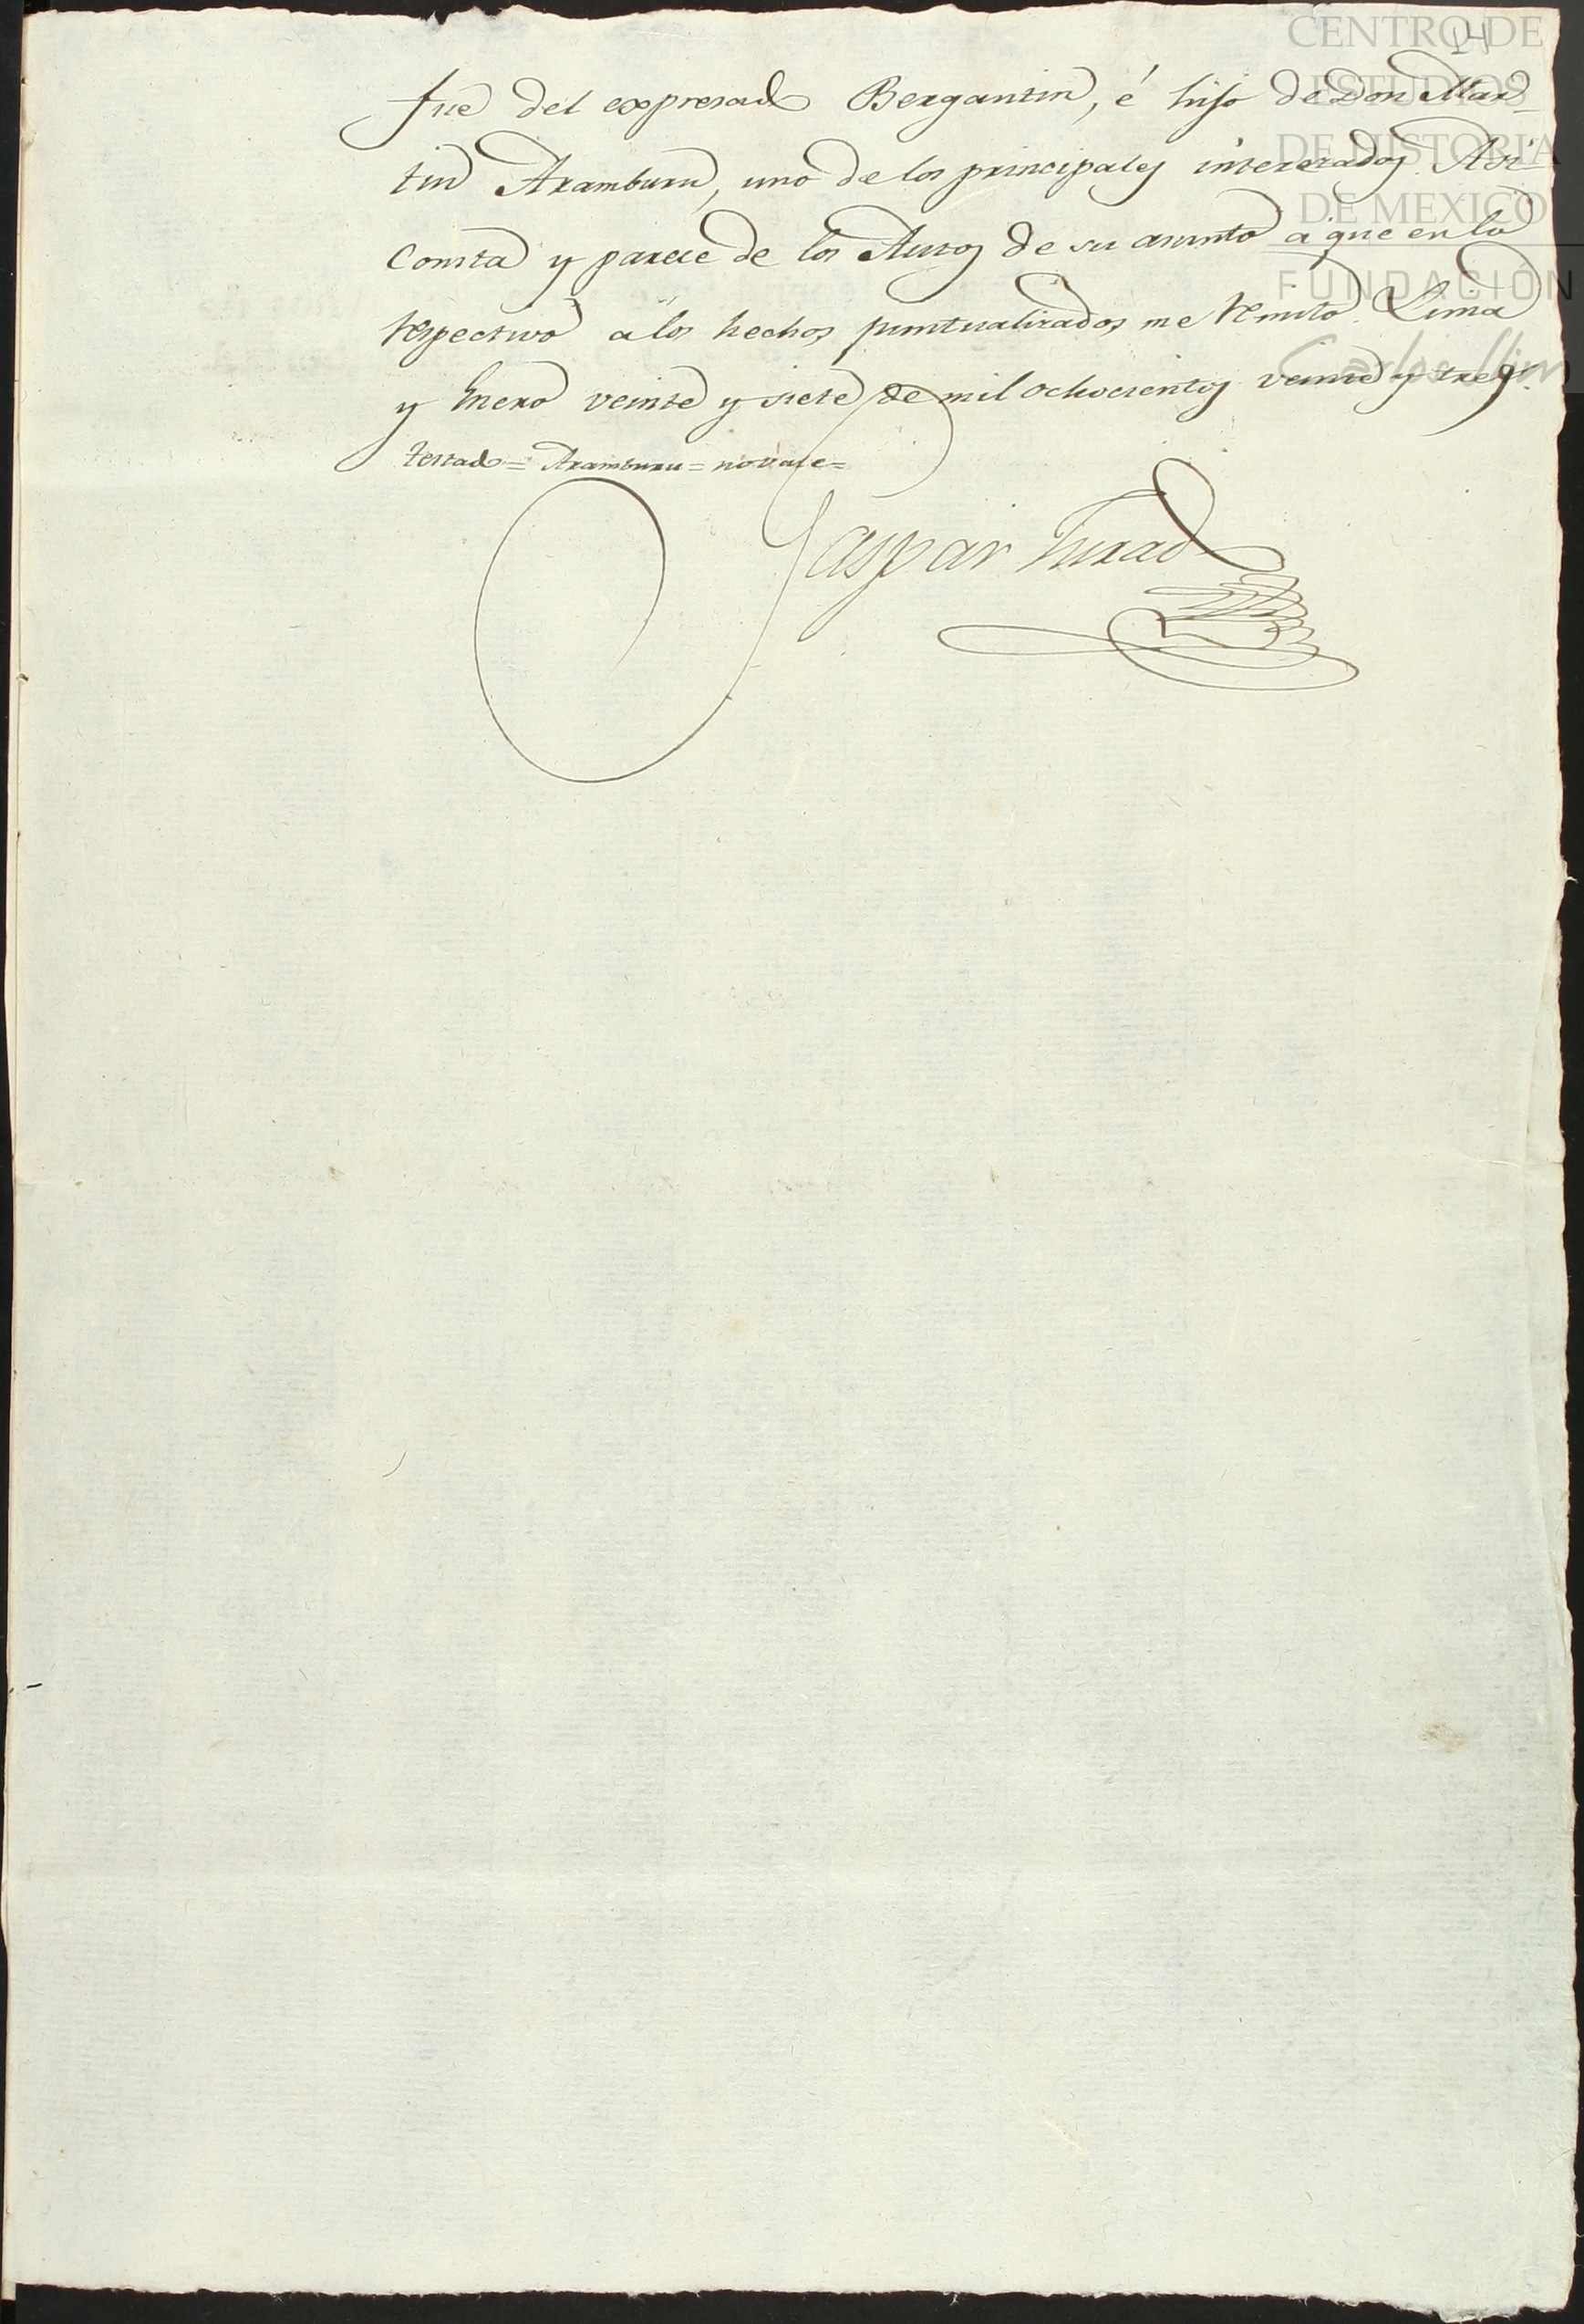 14
fué del expresado Bergantin, é hijo de Don Mar-
tin Aramburu, uno de los principales interesados. Asi
consta y parece de los Autos de su asunto a que en lo
respectivo á los hechos puntualizados me remito. Lima
y Enero veinte y siete de mil ochocientos veinte y tres.
testado = Aramburu = no vale =
Gaspar Jurado
CENTRO DE
ESTUDIOS
DE HISTORIA
DE MEXICO
FUNDACIÓN
Carlos Slim